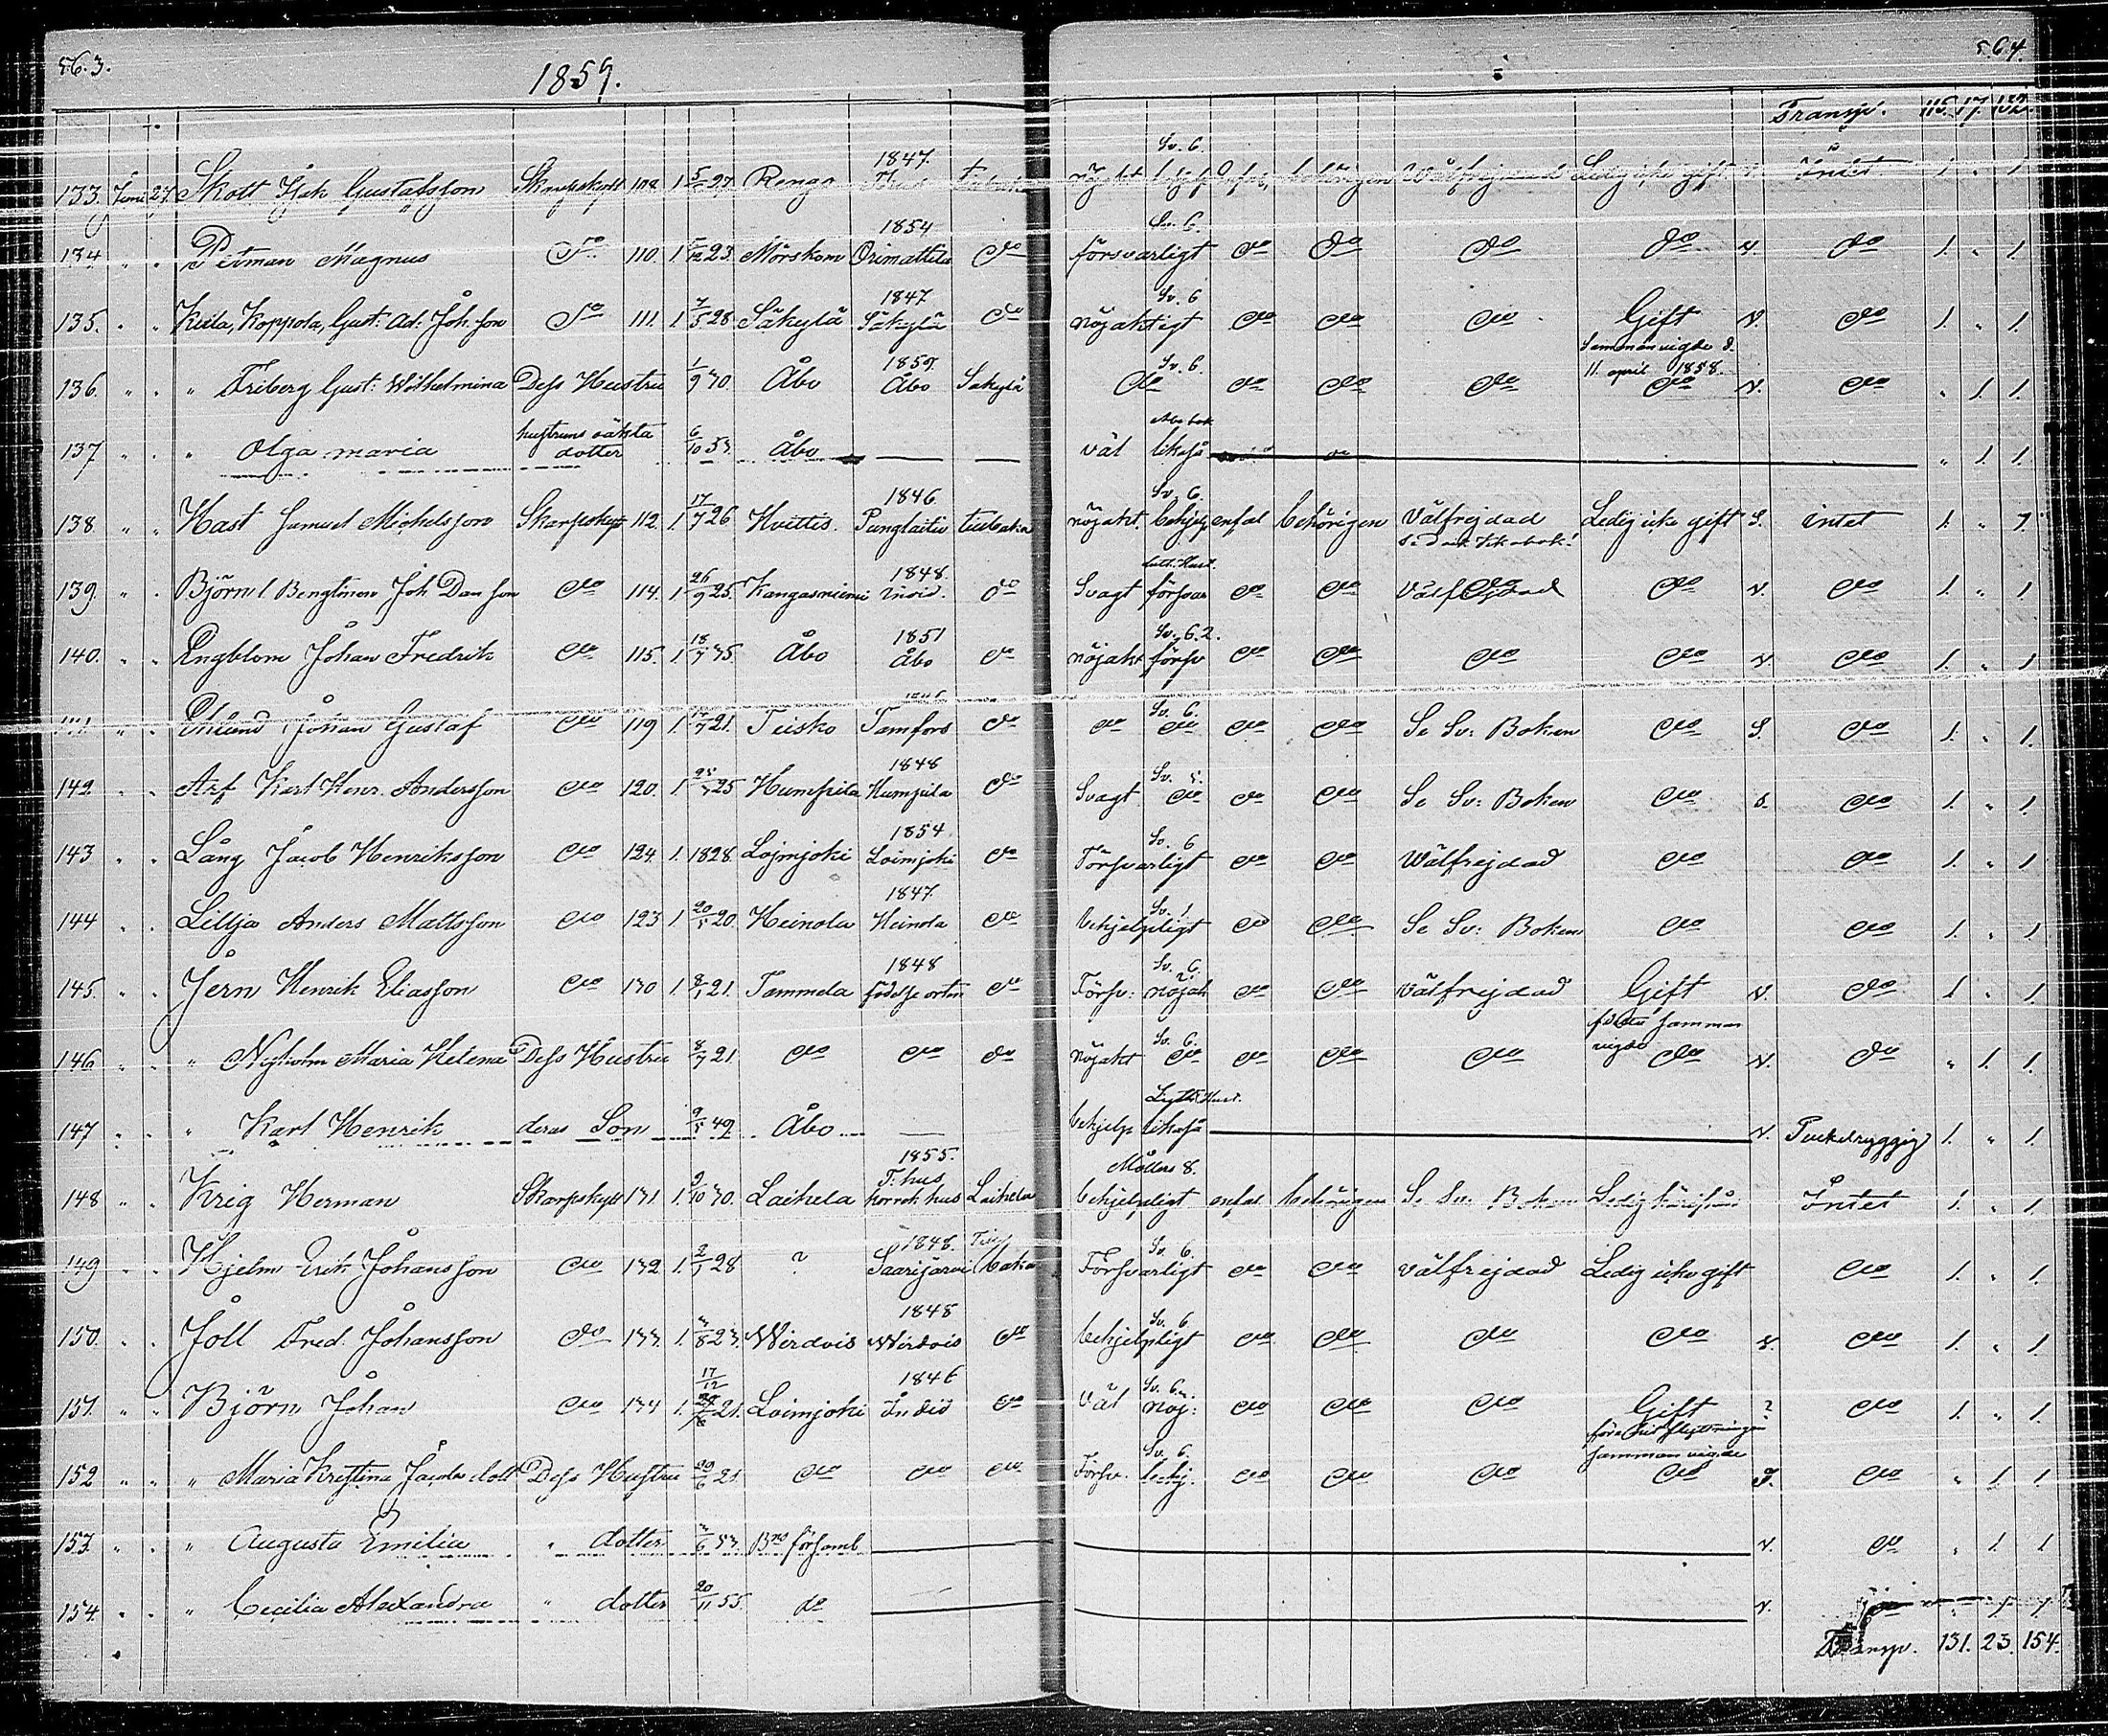 563.
1859.
564.
Transp. 115. 17. 132.
133. Juni 27. Skott Isak Gustafsson Skarpskytt 108. 1. 5/ 27 Rengo 1847. tillbaka nöjakt Sv. 6. behjelp enfal. behörigen Wälfrejdad Ledig icke gift v. Intet 1. " 1
134. " " Petman Magnus do 110. 1. 5/12 23. Mörskom 1854 Orimattila do försvarligt Sv. 6. do do do do v. do 1. " 1.
135. " " Koppola, Gust: Ad: Joh: son do 111. 1. 7/5 28 Säkylä 1847 Säkylä do nöjaktigt Sv. 6 do do do Gift v. do 1. " 1.
Sammanvigde d. 11 april 1858.
136. " " " Friberg Gust: Wilhelmina Dess Hustru 1/9 30. Åbo 1859. Åbo Säkylä do Sv. 6. do do do do v. do " 1. 1.
137 " " " Olga Maria hustruns oäkta dotter 6/10 53. Åbo — — väl Abc bok likaså " 1. 1.
138 " " Hast Samuel Michelsson Skarpskytt 112. 1. 17/7 26 Hvittis. 1846 Pungalaitio tillbaka nöjakt. Sv. 6. behjelp enfal behörigen Välfrejdad Ledig icke gift S. intet 1. "
139. " " Björn l. Bengtsson Joh Dan son do 114. 1. 26/9 25. Kangasniemi 1848. do Svagt Luth. Hust. försvar do do Välfrejdad do v. do 1. " 1
140. " " Engblom Johan Fredrik do 115. 1. 18/7 35. Åbo 1851 Åbo do nöjakt Sv. 6.2. försv do do do do v. do 1. " 1
141. " " Johan Gustaf do 119 1. 21. Teisko Tamfors do do Sv. 6. do do do Se Sv: Boken do S. do 1. " 1.
142. " " Arf Karl Henr. Andersson do 120. 1. 25. Humppila 1848 Humppila do Svagt Sv. 5. do do do Se Sv: Boken do S. do 1. " 1.
143 " " Lång Jacob Henriksson do 124 1. 1828. Lojmjoki 1854 Loimjoki do Försvarligt Sv. 6 do do Wälfrejdad do do 1. " 1.
144 " " Lillja Anders Mattsson do 123 1. 20/5 20. Heinola 1847. Heinola do behjelpligt Sv. 1 do do Se Sv: Boken do do 1. " 1.
145. " " Jern Henrik Eliasson do 130 1. 8/1 21. Tammela 1848 födelse orten do Försv: Sv. 6. nöjak do do välfrejdad Gift v. do 1. " 1.
samman vigde
146 " " " Nyholm Maria Helena Dess Hustru 8/7 21. do do do nöjakt Sv. 6. do do do do do v. do " 1. 1.
147 " " " Karl Henrik deras Son 9/5 49. Åbo — behjelp Luth: Hust. likaså v. Puckelryggig 1. " 1.
148 " " Krig Herman Skarpskytt 131. 1. 9/10 30. Laihela 1855. T: hus korrek hus Laihela behjelpligt Möllers 8. enfal behörigen Se Sv: Boken Ledig härifrån Intet 1. " 1
149 " " Hjelm Erik Johansson do 132 1. 2/1 28 ? 1848. Saarijärvi Till baka Försvarligt Sv. 6. do do välfrejdad Ledig icke gift do 1. " 1.
150. " " Joll Fred. Johansson do 133. 1. 3/8 23. Wirdois 1848 Wirdois do behjelpligt Sv. 6 do do do do v. do 1. " 1.
151. " " Björn Johan do 134 1. 17/12 21. Loimjoki 1846 In did do Väl Sv. 6. nöj: do do do Gift ? do 1. " 1.
före hit flyttningen sammanvigde
152 " " " Maria Kristina Jacobs dott Dess Hustru 29/6 21 do do do Försv. Sv. 6. do do do do S. do " 1. 1
153. " " " Augusta Emilia " dotter 3/6 53. församl v. do " 1. 1
154. " " " Cecilia Alexandra " dotter 20/11 55. do v.
Transp. 131. 23. 154.